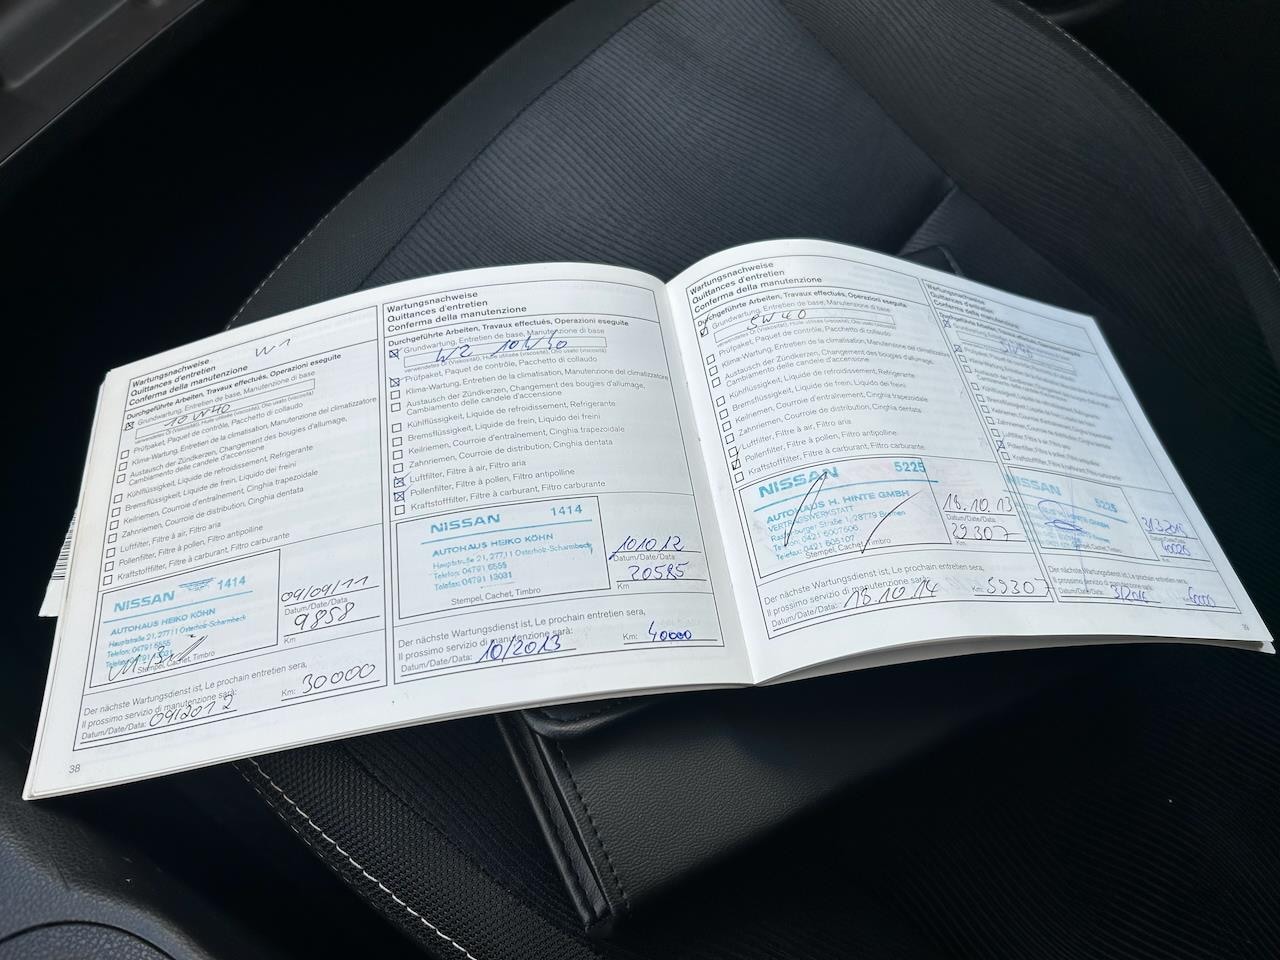 Wartungsnachweise
Quittances d'entretien
Conferma della manutenzione
W1
Durchgeführte Arbeiten, Travaux effectués, Operazioni eseguite
Grundwartung, Entretien de base, Manutenzione di base
10W40
verwendetes Öl (Viskosität), Huile utilisée (viscosité), Olio usato (viscosità)
Prüfpaket, Paquet de contrôle, Pacchetto di collaudo
Klima-Wartung, Entretien de la climatisation, Manutenzione del climatizzatore
Austausch der Zündkerzen, Changement des bougies d'allumage,
Cambiamento delle candele d'accensione
Kühlflüssigkeit, Liquide de refroidissement, Refrigerante
Bremsflüssigkeit, Liquide de frein, Liquido dei freini
Keilriemen, Courroie d'entraînement, Cinghia trapezoidale
Zahnriemen, Courroie de distribution, Cinghia dentata
Luftfilter, Filtre à air, Filtro aria
Pollenfilter, Filtre à pollen, Filtro antipolline
Kraftstofffilter, Filtre à carburant, Filtro carburante
NISSAN 1414
AUTOHAUS HEIKO KÖHN
Hauptstraße 21, 27711 Osterholz-Scharmbeck
Telefon: 04791 6555
Stempel, Cachet, Timbro
09/09/11
Datum/Date/Data
9858
Km
Der nächste Wartungsdienst ist, Le prochain entretien sera,
Il prossimo servizio di manutenzione sarà:
Datum/Date/Data: 09/2012
Km: 30000
38
Wartungsnachweise
Quittances d'entretien
Conferma della manutenzione
Durchgeführte Arbeiten, Travaux effectués, Operazioni eseguite
Grundwartung, Entretien de base, Manutenzione di base
W2 10W40
verwendetes Öl (Viskosität), Huile utilisée (viscosité), Olio usato (viscosità)
Prüfpaket, Paquet de contrôle, Pacchetto di collaudo
Klima-Wartung, Entretien de la climatisation, Manutenzione del climatizzatore
Austausch der Zündkerzen, Changement des bougies d'allumage,
Cambiamento delle candele d'accensione
Kühlflüssigkeit, Liquide de refroidissement, Refrigerante
Bremsflüssigkeit, Liquide de frein, Liquido dei freini
Keilriemen, Courroie d'entraînement, Cinghia trapezoidale
Zahnriemen, Courroie de distribution, Cinghia dentata
Luftfilter, Filtre à air, Filtro aria
Pollenfilter, Filtre à pollen, Filtro antipolline
Kraftstofffilter, Filtre à carburant, Filtro carburante
NISSAN 1414
AUTOHAUS HEIKO KÖHN
Hauptstraße 21, 27711 Osterholz-Scharmbeck
Telefon: 04791 6555
Telefax: 04791 13031
Stempel, Cachet, Timbro
101012
Datum/Date/Data
20585
Km
Der nächste Wartungsdienst ist, Le prochain entretien sera,
Il prossimo servizio di manutenzione sarà:
Datum/Date/Data: 10/2013
Km: 40000
Wartungsnachweise
Quittances d'entretien
Conferma della manutenzione
Durchgeführte Arbeiten, Travaux effectués, Operazioni eseguite
Grundwartung, Entretien de base, Manutenzione di base
5W40
verwendetes Öl (Viskosität), Huile utilisée (viscosité), Olio usato (viscosità)
Prüfpaket, Paquet de contrôle, Pacchetto di collaudo
Klima-Wartung, Entretien de la climatisation, Manutenzione del climatizzatore
Austausch der Zündkerzen, Changement des bougies d'allumage,
Cambiamento delle candele d'accensione
Kühlflüssigkeit, Liquide de refroidissement, Refrigerante
Bremsflüssigkeit, Liquide de frein, Liquido dei freini
Keilriemen, Courroie d'entraînement, Cinghia trapezoidale
Zahnriemen, Courroie de distribution, Cinghia dentata
Luftfilter, Filtre à air, Filtro aria
Pollenfilter, Filtre à pollen, Filtro antipolline
Kraftstofffilter, Filtre à carburant, Filtro carburante
NISSAN 5225
AUTOHAUS H. HINTE GMBH
VERTRAGSWERKSTATT
Straße 1, 28779 Bremen
Telefon: 0421
Telefax: 0421 605107
Stempel, Cachet, Timbro
18.10.13
Datum/Date/Data
Km
Der nächste Wartungsdienst ist, Le prochain entretien sera,
Il prossimo servizio di manutenzione sarà:
Datum/Date/Data: 18.10.14
Km: 59307
Wartungsnachweise
Quittances d'entretien
Conferma della manutenzione
Durchgeführte Arbeiten, Travaux
Grundwartung, Entretien de base,
5W40
NISSAN 5225
Stempel, Cachet, Timbro
Der nächste Wartungsdienst ist, Le prochain entretien sera,
Il prossimo servizio di manutenzione sarà:
Datum/Date/Data:
39